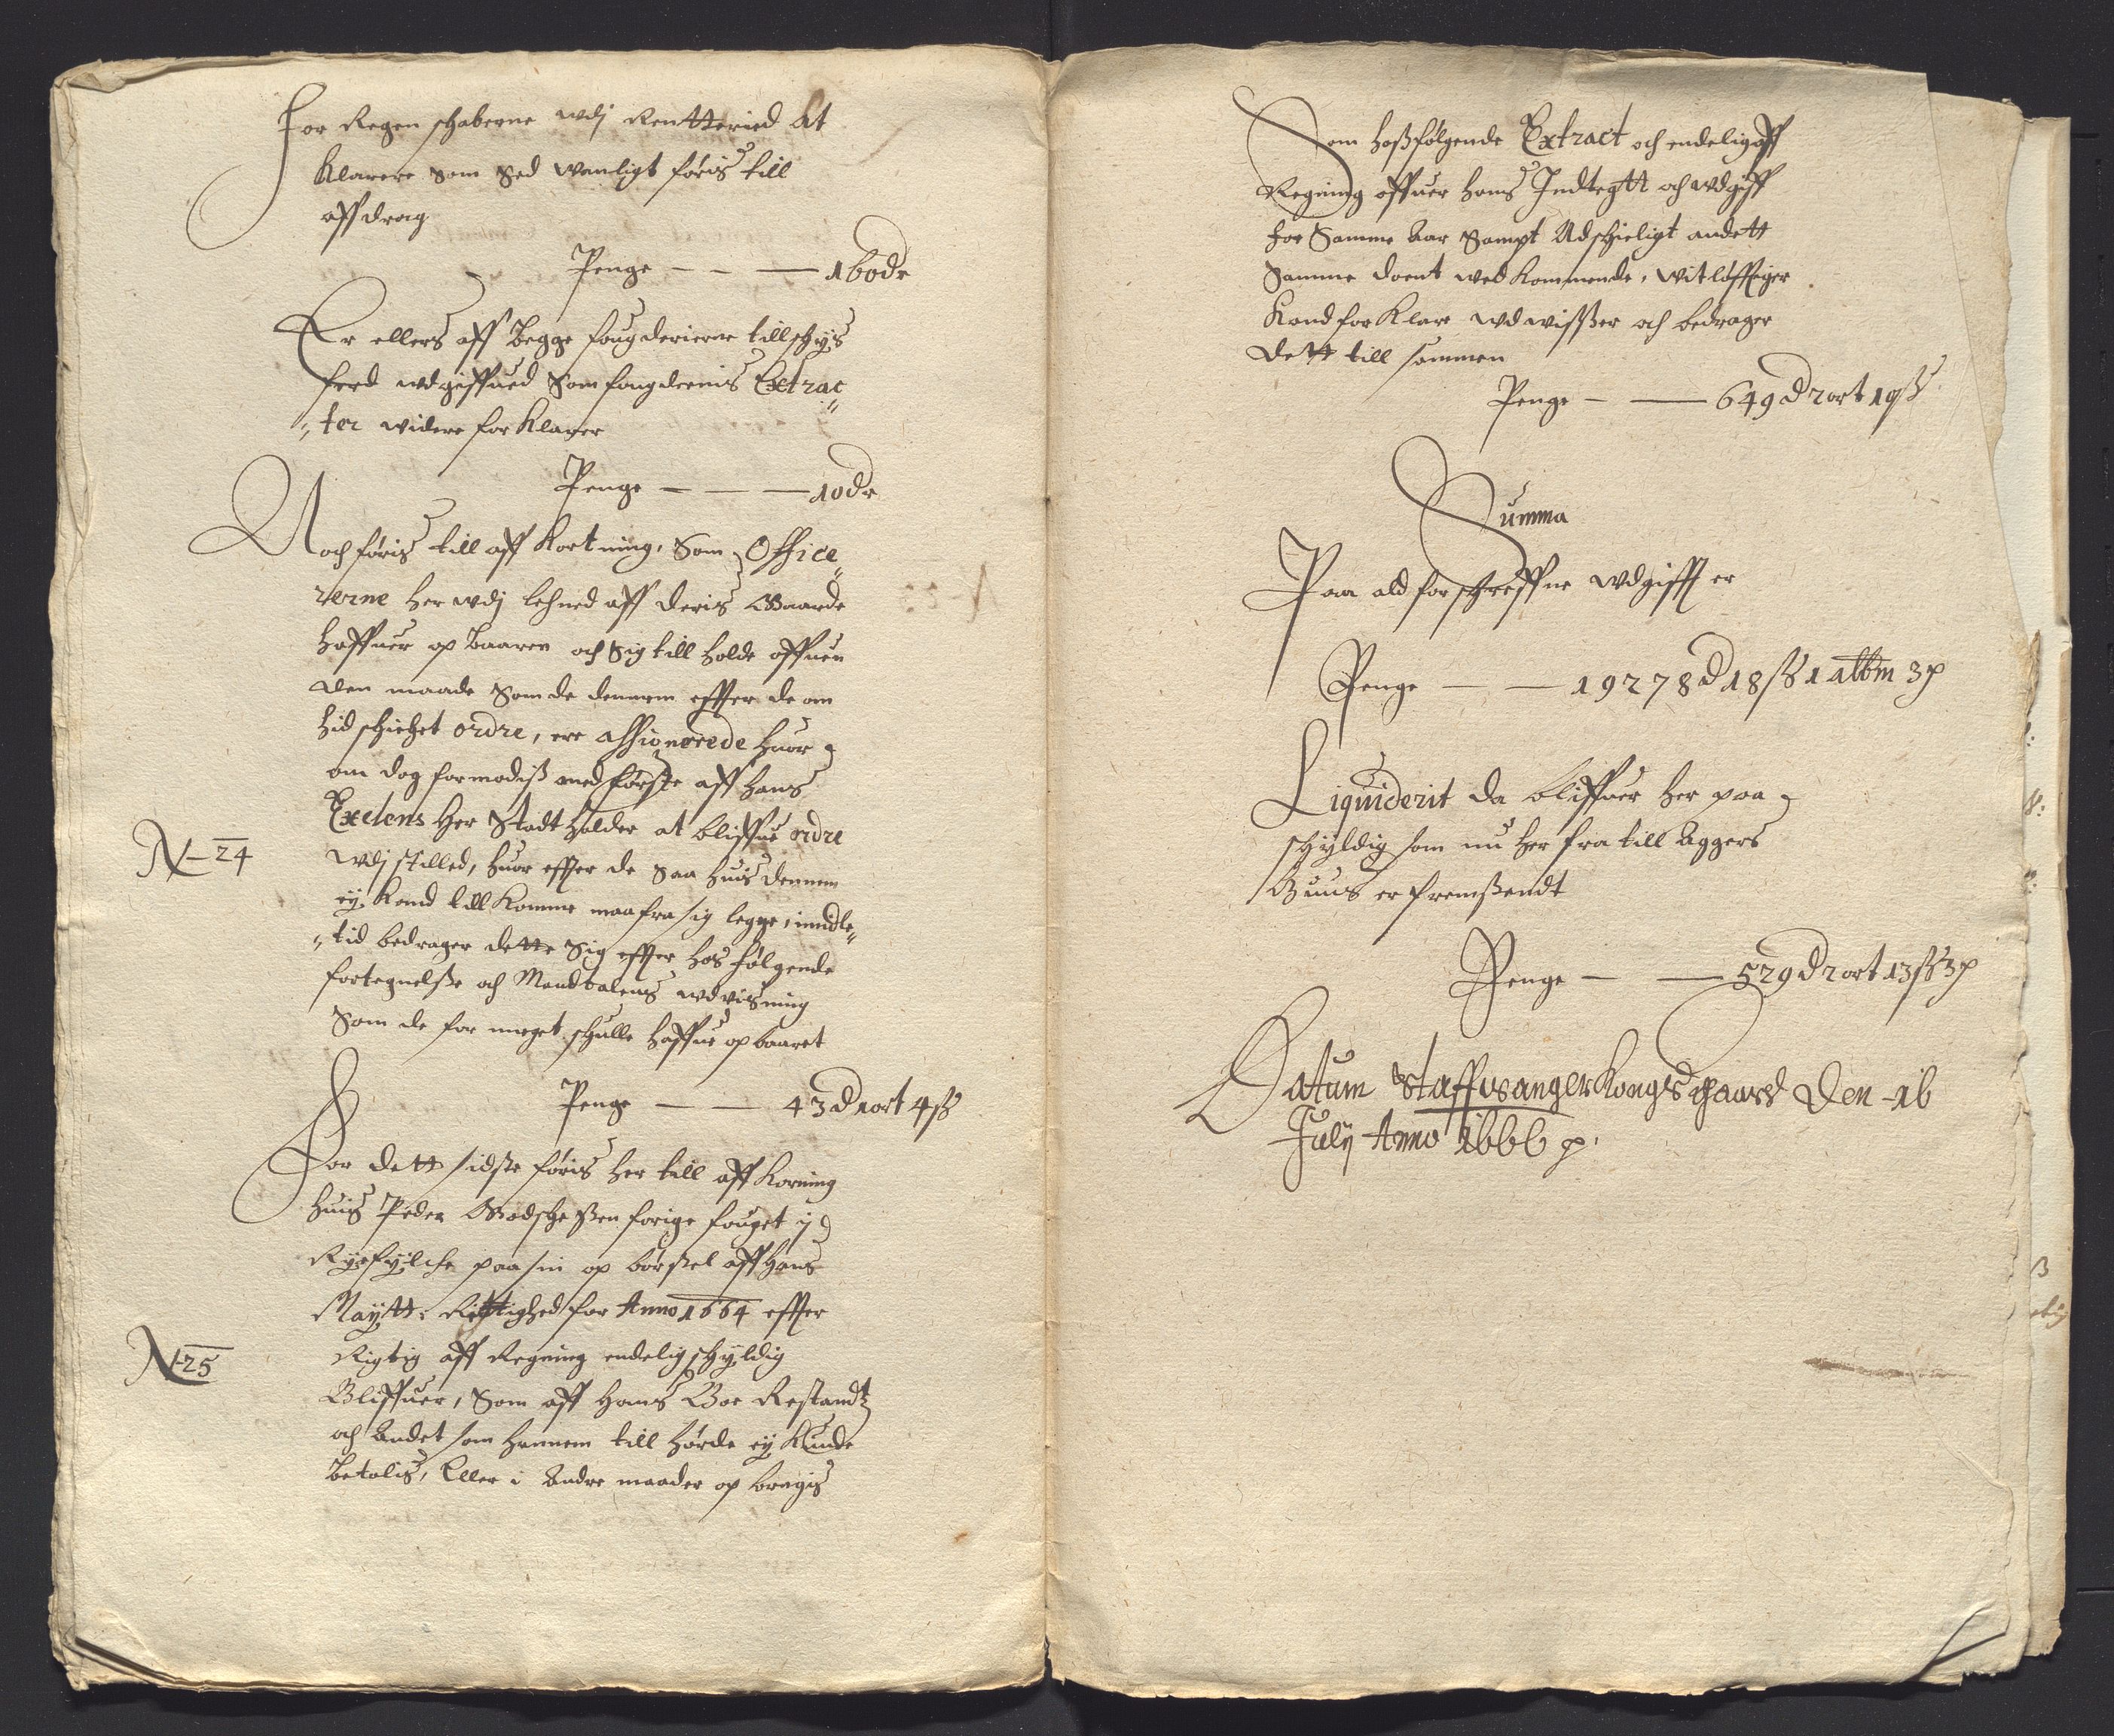 For Regenschaberne wdj Rentteried At
Klarere som Sed wanligt føris till
affdrag
Penge - - — 160 dr
Er ellers aff Begge fougderierne till schys
ferd wdgiffued Som fougdernis Extrac„
„ter widere forklarer
Penge — — — 10 dr
Noch føris till aff Kortning, Som Office„
rerne her wdj lehned aff deris Gaarde
haffuer op baaren och Sig till holdt offuen
den maade Som de dennem effter de om
hid schichet ordre, ere assignerede huor
om dog formodiß med første aff hans
Exelens Her Stadtholder at bliffue ordre
N– 24
wdj stilled, huor effter de Saa huis dennem
ej Kand till Komme maa fra sig legge, imidle„
„tid bedrager dette Sig effter hos følgende
fortegnelsße och Mandtalens wdvisning
Som de for meget schulle haffue op baaret
Penge — — 43 d 1 ort 4 ß
For dett sidste føris her till aff Korning
huis Peder Godschesßen forige fouget ÿ
Ryefÿlche paa sin op børßel aff Hans
Maÿtt: Rettighed for Anno 1664 effter
N 25
Rigtig aff Regning endelig schÿldig
Bliffuer, Som aff hans Boe Restandtz
och Andet som hannem till hørde eÿ Kunde
betalis, Eller i Andre maader op bringis
Som hoßfølgende Extract och endelig aff
Regning offuer hans Indtegtt och wdgiff
for Samme Aar Sampt Adschieligt andett
Samme doent wed Kommende, witløfftiger
Kand forklare wdwisßer och bedrager
dett till sammen
Penge — — 649 d 2 ort 19 ß
Summa
Paa ald forschreffne wdgiffter
Penge — — 19278 d 18 ß 1 alb m 3 p
Liquiderit da bliffuer her paa
schÿldig som nu her fra till Aggers
Huus er fremßendt
Penge — — 529 d 2 ort 13 ß 3 p
Datum Staffvanger Kongsgaard Den 16
Julÿ Anno 1666 p.